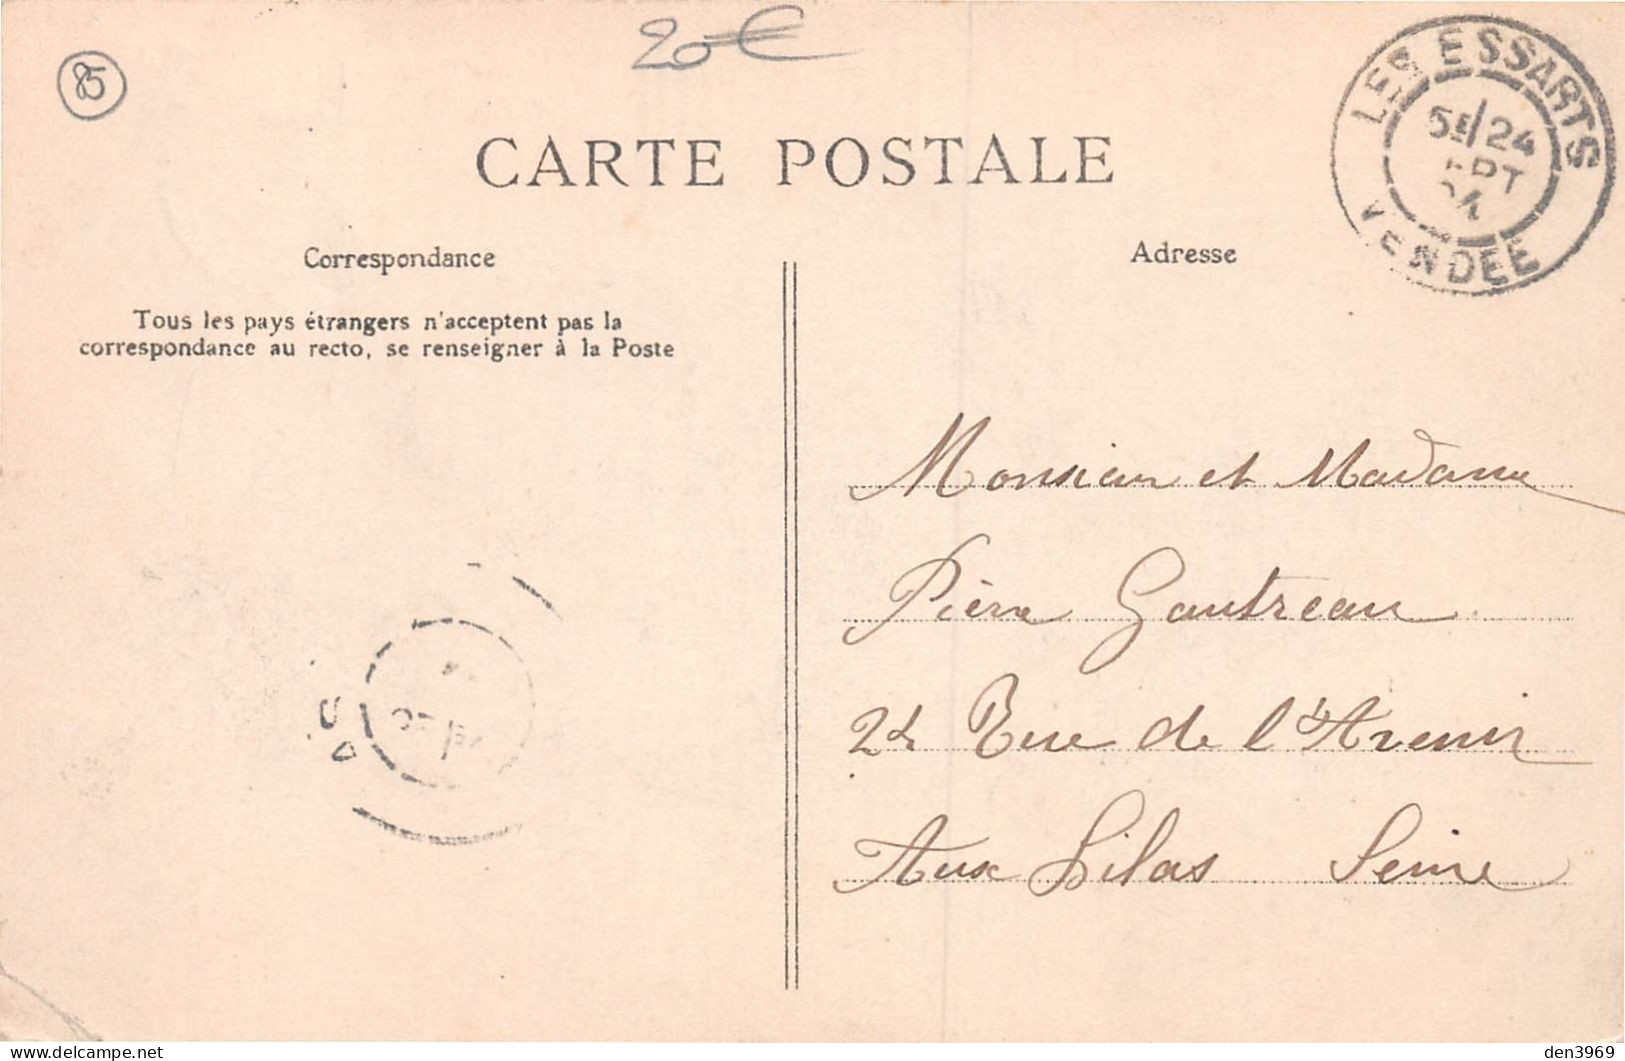 85
20€
LES ESSARTS
5E/24
SEPT
04
VENDÉE
CARTE POSTALE
Correspondance
Adresse
Tous les pays étrangers n'acceptent pas la
correspondance au recto, se renseigner à la Poste
Monsieur et Madame
Pierre Gautreau
24 Rue de l'Avenir
Aux Lilas Seine
den3969